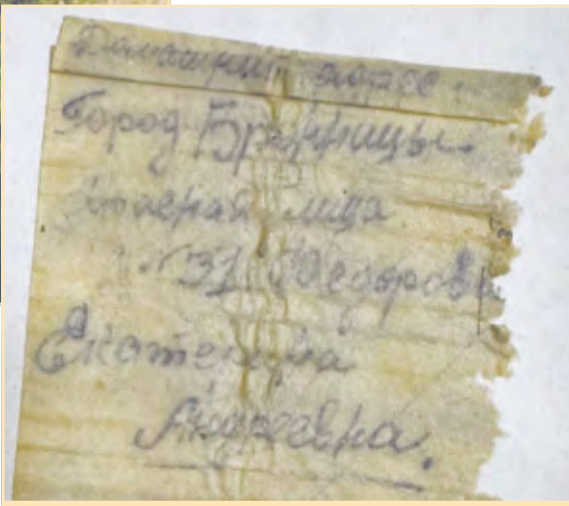 Домашний адрес
Город Бронницы.
улица
№ 31 Федорова
Екатерина
Андреевна.